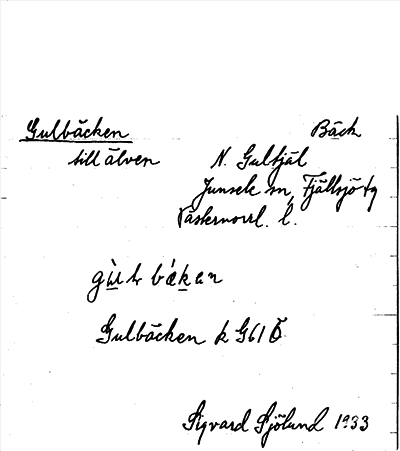 Gulbäcken Bäck
till älven N. Gulsjäl
Junsele sn, Fjällsjö tg
Västernorrl. l.
Gulbäcken k G61 Ö
Sigvard Sjölund 1933